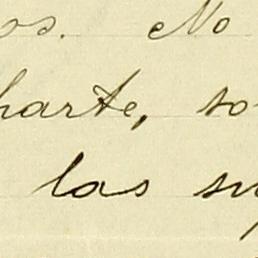 os. No
parte, so
las su